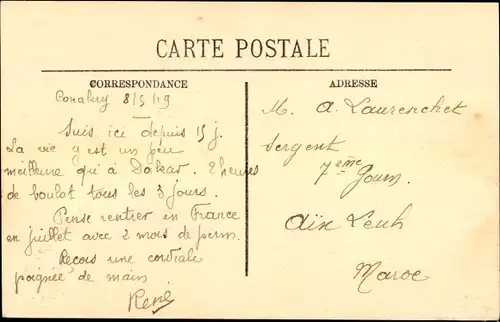 CARTE POSTALE
CORRESPONDANCE
Conakry 8/5/19
Suis ici depuis 15 j.
La vie y est un peu
meilleure qu'à Dakar. 2 heures
de boulot tous les 3 jours.
Pense rentrer en France
en juillet avec 2 mois de perm.
Reçois une cordiale
poignée de main
René
ADRESSE
M. A. Laurenchet
Sergent
7ème Goum.
Aïn Leuh
Maroc